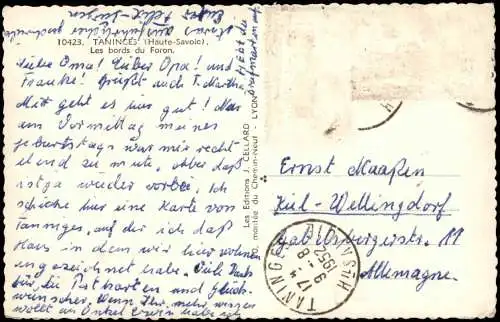 10423. TANINGES (Haute-Savoie).
Les bords du Foron.
Liebe Oma! Lieber Opa! und
Frauke! Grüßt auch T. Martha
Mir geht es gut! Nur
am Vormittag meines
Geburtstags war mir recht
elend zu mute, aber das
ist ja wieder vorbei. Ich
schicke hier eine Karte von
Taninges, auf der ich das
Haus in dem wir hier wohnen
eingezeichnet habe. Viele Dank
für die Postkarten und Glück-
wünsche. Wenn Ihr mehr wissen
wollt als Onkel Erwin habe ich
Les Editions J. CELLARD
montée du Chemin-Neuf - LYON
Ernst Maaßen
Kiel-Wellingdorf
Gabelsbergerstr. 11
Allemagne.
TANINGES
17 4
9 - 8
1952
Hte SAVOIE